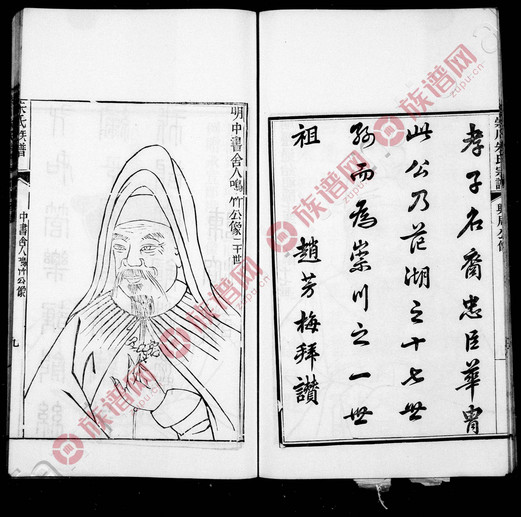 孝子名裔忠臣華胄
此公乃范湖之十七世
孫而為崇川之一世
祖
趙芳梅拜讃
明中書舍人鳴竹公像二十世
氏族譜
中書舍人鳴竹公像
九
族谱网
zupu.cn
族谱网
族谱网
族谱网